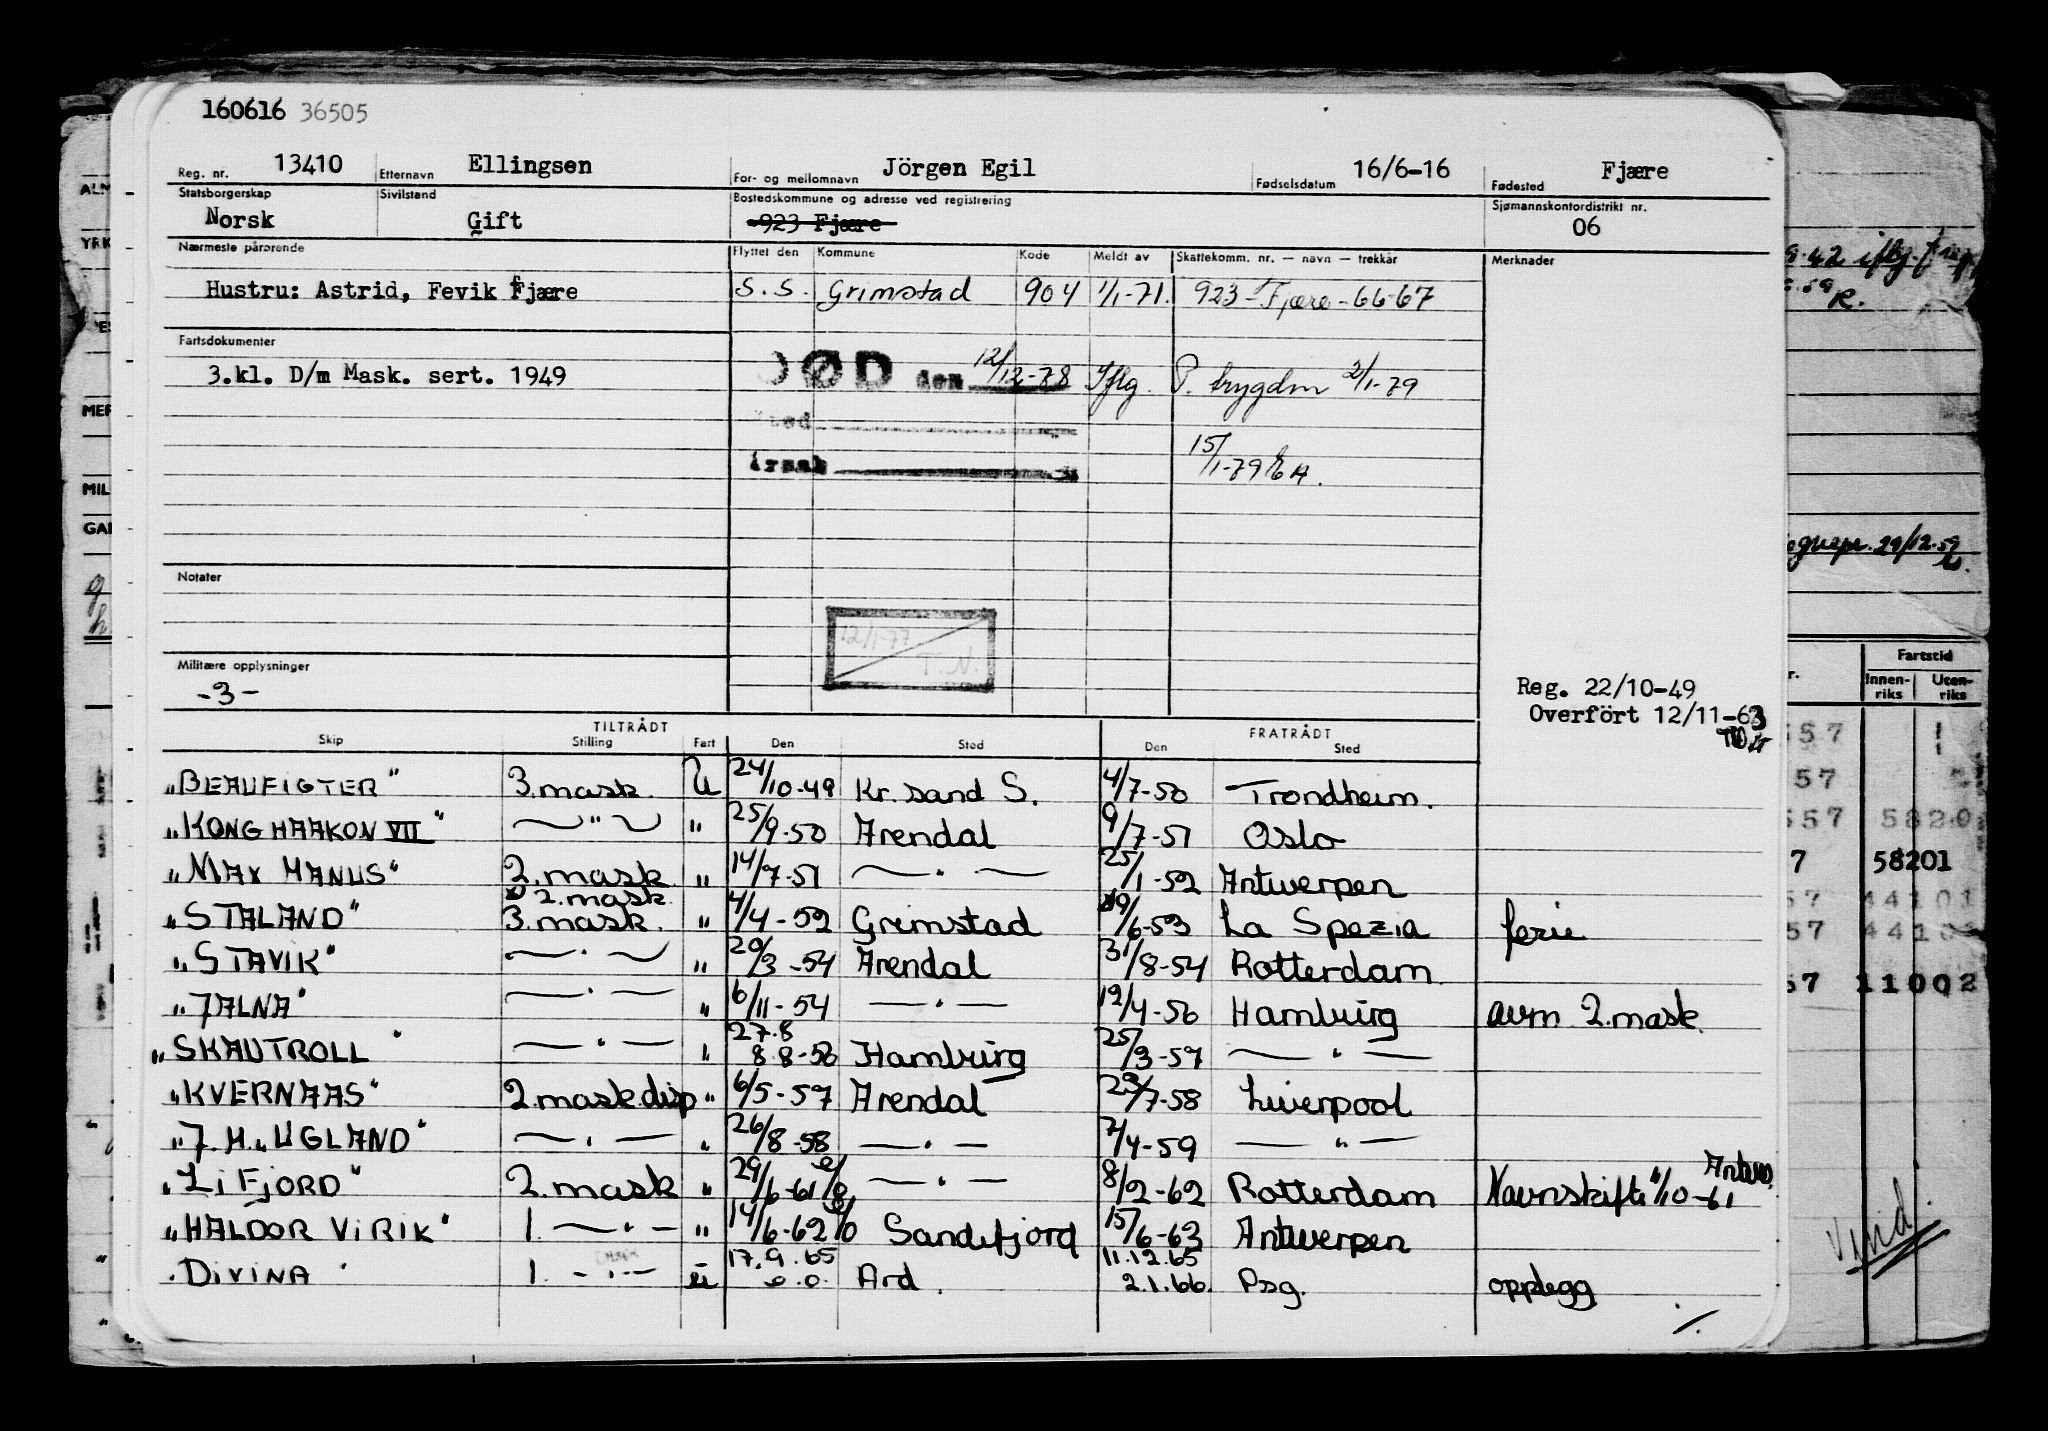 160616 36505
Reg. nr. 13410 Etternavn Ellingsen For- og mellomnavn Jörgen Egil Fødselsdatum 16/6-16 Fødested Fjære
Statsborgerskap Sivilstand Bostedskommune og adresse ved registrering Sjømannskontordistrikt nr.
Norsk Gift 923 Fjære 06
Nærmeste pårørende Flyttet den Kommune Kode Meldt av Skattekomm. nr. — navn — trekkår Merknader
Hustru: Astrid, Fevik Fjære S.S. Grimstad 904 1/1-71. 923-Fjære-66-67
Fartsdokumenter
3.kl. D/m Mask. sert. 1949 DØD den 12/12-78 Iflg. P. brygdm 2/1-79
Sted
Årsak 15/1-79
Notater
12/1-77
T.N.
Militære opplysninger
-3-
Reg. 22/10-49
Overfört 12/11-63
TILTRÅDT FRATRÅDT
Skip Stilling Fart Den Sted Den Sted
"BEAUFIGTER" 3.mask. U 24/10-49 Kr.sand S. 4/7-50 Trondheim.
"KONG HAAKON VII" —"— " 25/9-50 Arendal 9/7-51 Oslo
"MAX MANUS" 2.mask " 14/7-51 —"— 25/1-52 Antwerpen
2.mask.
"STALAND" 3.mask. " 4/4-52 Grimstad 19/6-53 La Spezia ferie
"STAVIK" —"— " 20/3-54 Arendal 31/8-54 Rotterdam
"JALNA" —"— " 6/11-54 —"— 12/4-56 Hamburg avm 2.mask.
27.8
"SKAUTROLL" —"— " 8.8-56 Hamburg 25/3-57 —"—
"KVERNAAS" 2.mask.disp " 6/5-57 Arendal 23/7-58 Liverpool
"J.H. UGLAND" —"— " 26/8-58 —"— 7/4-59 —"—
"LIFJORD" 2.mask " 29/6-61 —"— 8/2-62 Rotterdam Navnskifte "/10-61 Antw.
"HALDOR VIRIK" 1. —"— " 14/6-62 Sandefjord 15/6-63 Antwerpen
"DIVINA" 1. —"— u 17.9.65 Ard. 11.12.65
e.o. 2.1.66. Psg. opplegg
./.
ALM
YRK
MER
MIL
GAR
29/12-59
Fartstid
Innen-riks Uten-riks
557 1
57
557 5820
7 58201
57 44101
57
57 11002
Vend.